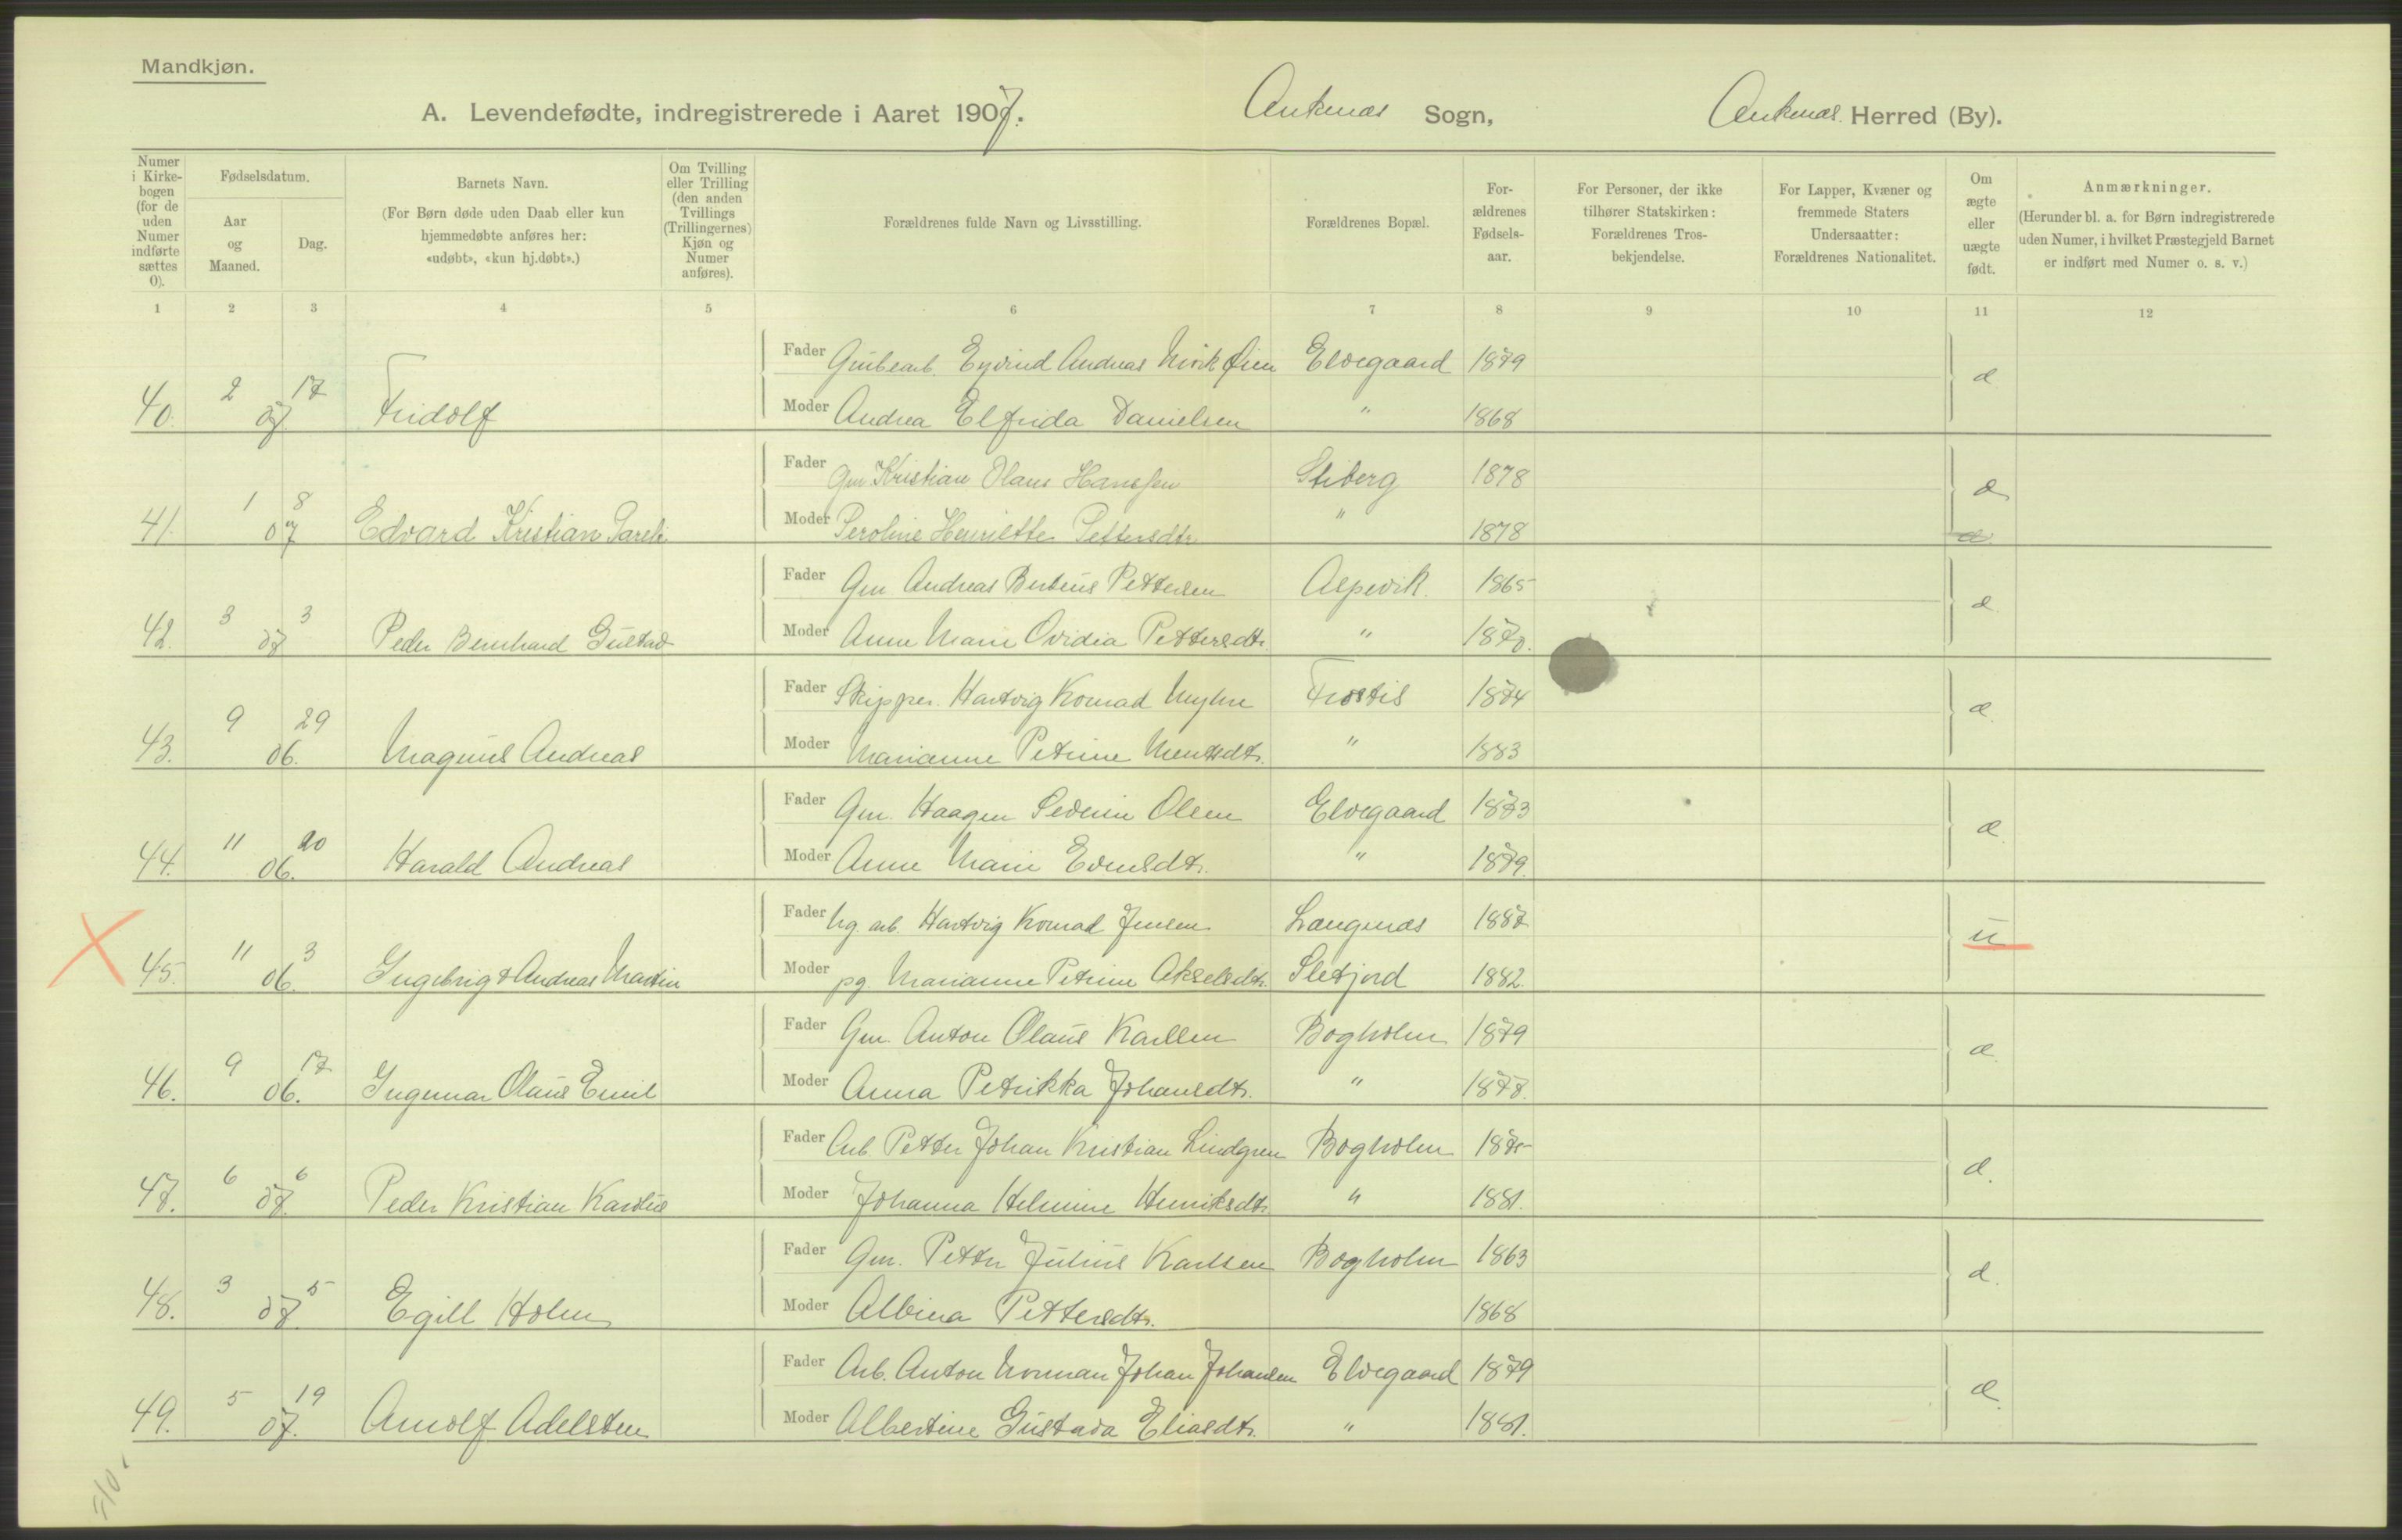 Mandkjøn.
A. Levendefødte, indregistrerede i Aaret 1907. Ankenæs Sogn, Ankenæs Herred (By).
Numer i Kirke-bogen (for de uden Numer indførte sættes 0).
Fødselsdatum.
Aar og Maaned.
Dag.
Barnets Navn.
(For Børn døde uden Daab eller kun hjemmedøbte anføres her: «udøbt», «kun hj.døbt».)
Om Tvilling eller Trilling (den anden Tvillings (Trillingernes) Kjøn og Numer anføres).
Forældrenes fulde Navn og Livsstilling.
Forældrenes Bopæl.
For-ældrenes Fødsels-aar.
For Personer, der ikke tilhører Statskirken: Forældrenes Tros-bekjendelse.
For Lapper, Kvæner og fremmede Staters Undersaatter: Forældrenes Nationalitet.
Om ægte eller uægte født.
Anmærkninger.
(Herunder bl. a. for Børn indregistrerede uden Numer, i hvilket Præstegjeld Barnet er indført med Numer o. s. v.)
1 2 3 4 5 6 7 8 9 10 11 12
Fader Grubearb. Eyvind Andreas Øien Elvegaard 1879
40. 2 07 17 Fridolf Moder Andrea Elfrida Danielsen " 1868 æ
Fader Gm Kristian Olaus Hanssen Stiberg 1878
41. 1 07 8 Edvard Kristian Moder Peroline Henriette Pettersdtr " 1878 æ
Fader Gm Andreas Berteus Pettersen Aspevik. 1865
42. 3 07 3 Peder Bernhard Gustav Moder Anne Marie Ovidia Pettersdtr. " 1870. æ.
Fader Skipper. Hartvig Konrad Myhre Frostis 1874
43. 9 06. 29 Magnus Andreas Moder Marianne Petrine Mentsdtr. " 1883 æ.
Fader Gm. Haagen Severin Olsen Elvegaard 1873
44. 11 06. 20 Harald Andreas Moder Anne Marie Evensdtr. " 1879. æ.
Fader Ug. arb. Hartvig Konrad Jensen Langenæs 1887
45. 11 06. 3 Ingebrigt Andreas Martin Moder pg. Marianne Petrine Akselsdtr. Sletjord 1882. u
Fader Gm. Anton Olaus Karlsen Bogholm 1879
46. 9 06. 17 Ingemar Olaus Emil Moder Anna Petrikka Johansdtr. " 1877. æ.
Fader Arb. Petter Johan Kristian Lindgren Bogholm 1875
47. 6 07. 6 Peder Kristian Karolius Moder Johanna Helmine Henriksdtr " 1881. æ.
Fader Gm. Petter Julius Karlsen Bogholm 1863
48. 3 07. 5 Egill Holm Moder Albina Pettersdtr. 1868 æ.
Fader Arb. Anton Norman Johan Johansen Elvegaard 1879
49. 5 07. 19 Arnolf Adelsten Moder Albertine Gustava Eliasdtr. " 1881. æ.